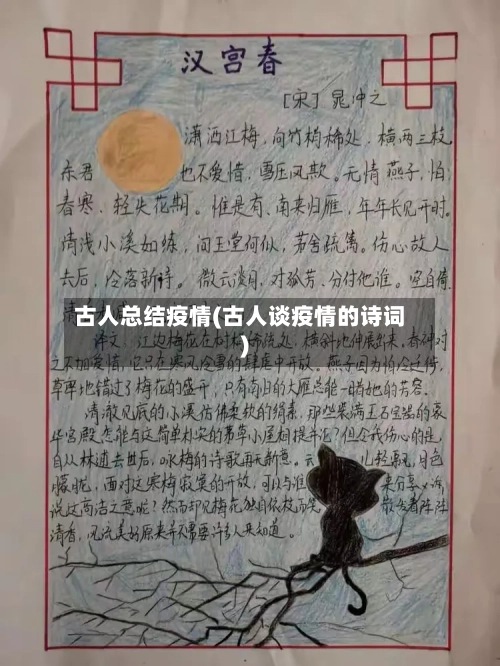 汉宫春
[宋] 晁冲之
潇洒江梅，向竹梢稀处，横两三枝
东君也不爱惜，雪压风欺。无情燕子，怕
春寒，轻失花期。惟是有，南来归雁，年年长见开时。
清浅小溪如练，问玉堂何似，茅舍疏篱。伤心故人
去后，冷落新诗。微云淡月，对孤芳，分付他谁。空自倚，
古人总结疫情(古人谈疫情的诗词
)
译文：江边梅花在 稀疏处，横斜地伸展出来，春神对
之不加爱惜，它只在寒风冷雪的肆虐中开放。燕子因为怕冷迁徙，
草率地错过了梅花的盛开，只有南归的大雁总能一睹她的芳容。
清澈见底的小溪仿佛柔软的绢素，那些装满玉石宝器的豪
华宫殿怎能与这简单朴实的茅草小屋相提并论？但令我伤心的是，
自从林逋去世后，咏梅的诗歌再无新意。云 儿轻飘，月色
朦胧，面对这寒梅寂寞的开放，可以与谁 来分享
说这高洁之意呢？然而却见梅花独自依枝而笑 散发着阵阵
清香，风流美的原来并不需要许多人来知道。